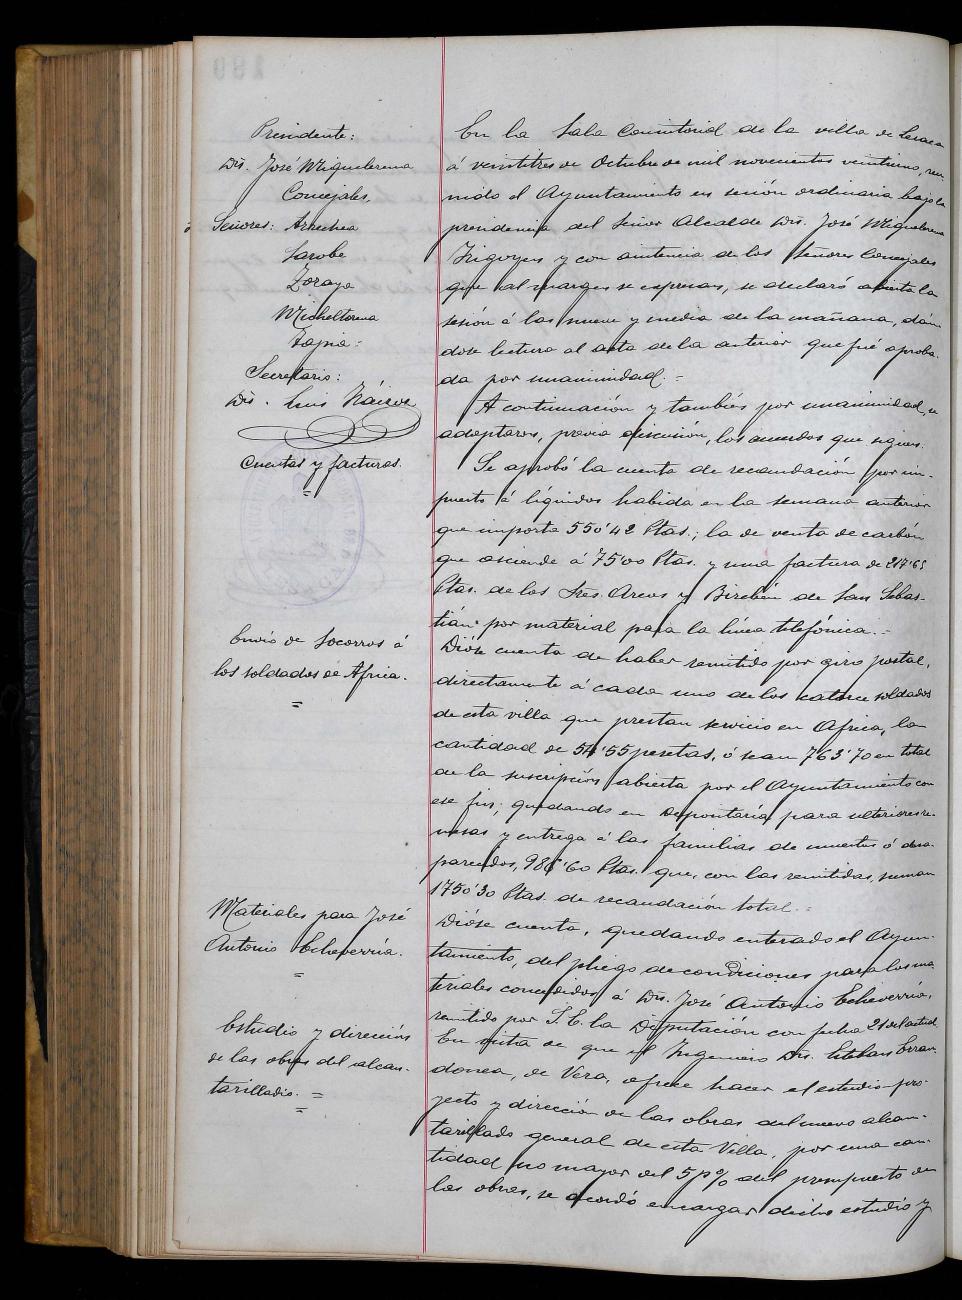 Presidente:
Dn. José Miguelerena
Concejales.
Señores: Arrechea
Sarobe
Zoraya
Micheltorena
Tapia =
Secretario:
Dn. Luis Náiroz
Cuentas y facturas.
=
Envío de socorros á
los soldados de Africa.
=
Materiales para José
Antonio Echeverría.
=
Estudio y dirección
de las obras del alcan-
tarillado. =
=
En la Sala Consistorial de la villa de Lesaca
á veintitres de Octubre de mil novecientos veintiuno, reu-
nido el Ayuntamiento en sesión ordinaria bajo la
presidencia del Señor Alcalde Dn. José Miguelerena
Irigoyen y con asistencia de los Señores Concejales
que al margen se expresan, se declaró abierta la
sesión á las nueve y media de la mañana, dán-
dose lectura al acta de la anterior que fué aproba-
da por unanimidad. =
A continuación y también por unanimidad, se
adoptaron, previa discusión, los acuerdos que siguen.
Se aprobó la cuenta de recaudación por im-
puesto á líquidos habida en la semana anterior
que importa 550'42 Ptas.; la de venta de carbón
que asciende á 75'00 Ptas. y una factura de 217'65
Ptas. de los Sres. Arcos y Birebén de San Sebas-
tián por material para la línea telefónica. =
Dióse cuenta de haber remitido por giro postal,
directamente á cada uno de los catorce soldados
de esta villa que prestan servicio en Africa, la
cantidad de 54'55 pesetas, ó sean 763'70 en total
de la suscripción abierta por el Ayuntamiento con
ese fin; quedando en Depositaría para ulteriores re-
mesas y entrega á las familias de muertos ó desa-
parecidos, 986'60 Ptas. que, con las remitidas, suman
1750'30 Ptas. de recaudación total. =
Dióse cuenta, quedando enterado el Ayun-
tamiento, del pliego de condiciones para los ma-
teriales concedidos á Dn. José Antonio Echeverría,
remitido por S. E. la Diputación con fecha 21 del actual
En vista de que el Ingeniero Dn. Esteban Erran-
donea, de Vera, ofrece hacer el estudio-pro-
yecto y dirección de las obras del nuevo alcan-
tarillado general de esta Villa, por una can-
tidad no mayor del 5 p% del presupuesto de
las obras, se acordó encargar dicho estudio y